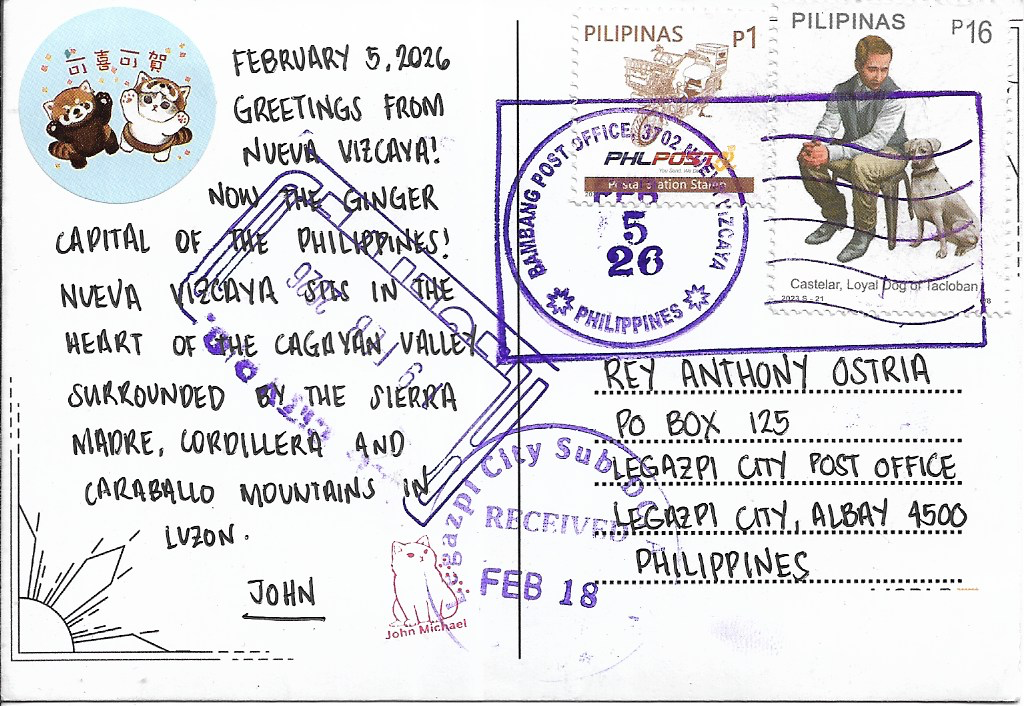 可喜可賀
FEBRUARY 5, 2026
GREETINGS FROM
NUEVA VIZCAYA!
NOW THE GINGER
CAPITAL OF THE PHILIPPINES!
NUEVA VIZCAYA SITS IN THE
HEART OF THE CAGAYAN VALLEY
SURROUNDED BY THE SIERRA
MADRE, CORDILLERA AND
CARABALLO MOUNTAINS IN
LUZON.
JOHN
John Michael
PILIPINAS P1
PHLPOST
Stamp
PILIPINAS P16
Castelar, Loyal Dog of Tacloban
2023 S - 21
BAMBANG POST OFFICE, 3702 NUEVA VIZCAYA
FEB
5
26
PHILIPPINES
REY ANTHONY OSTRIA
PO BOX 125
LEGAZPI CITY POST OFFICE
LEGAZPI CITY, ALBAY 4500
PHILIPPINES
Legazpi City Sub
RECEIVED
FEB 18
FEB 2026